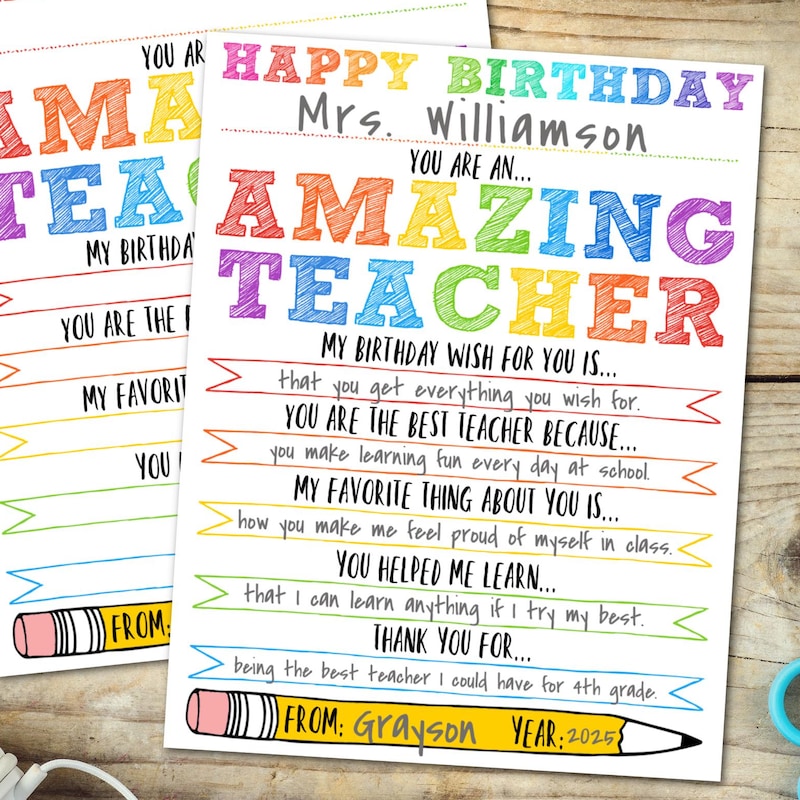 HAPPY BIRTHDAY
Mrs. Williamson
YOU ARE AN...
AMAZING
TEACHER
MY BIRTHDAY WISH FOR YOU IS...
that you get everything you wish for.
YOU ARE THE BEST TEACHER BECAUSE...
you make learning fun every day at school.
MY FAVORITE THING ABOUT YOU IS...
how you make me feel proud of myself in class.
YOU HELPED ME LEARN...
that I can learn anything if I try my best.
THANK YOU FOR...
being the best teacher I could have for 4th grade.
FROM: Grayson YEAR: 2025
YOU AR
AMAZ
TEAC
MY BIRTHDAY
YOU ARE THE
MY FAVORIT
YOU
FROM: